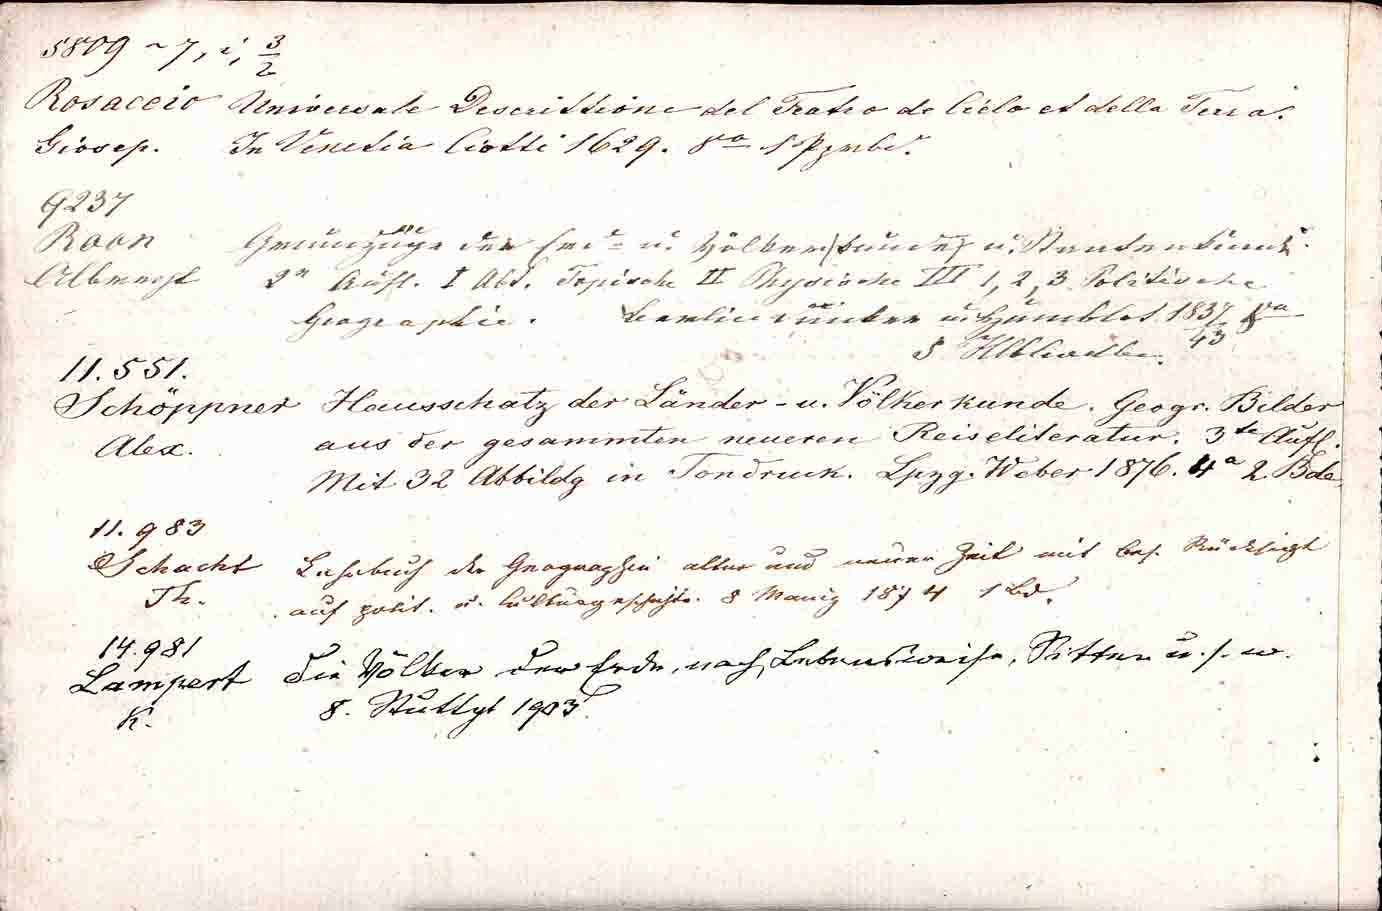 5809 ~ 7, i, 3/2
Rosaccio Universale Descrittione del Teatro de Cielo et della Terra.
Giosep. In Venetia Ciotti 1629. 8vo 1 Pgmbd.
9237
Roon Grundzüge der Erd- u. Völker(kunde) u. Staatenkunde.
Albrecht 2e Aufl. I Abt. Topische II Physische III 1, 2, 3 Politische
Geographie. Berlin Duncker u. Humblot 1837/43 8vo
5 Hlblwdbe.
11.551.
Schöppner Hausschatz der Länder- u. Völkerkunde. Geogr. Bilder
Alex. aus der gesammten neueren Reiseliteratur. 3te Aufl.
Mit 32 Abbildg in Tondruck. Lpzg. Weber 1876. 4o 2 Bde
11.983
Schacht Lehrbuch der Geographie alter und neuer Zeit mit bes. Rücksicht
Th. auf polit. u. Culturgeschichte. 8 Mainz 1874 1 Bd.
14.981
Lampert Die Völker der Erde, nach Lebensweise, Sitten u.s.w.
K. 8. Stuttgt 1903